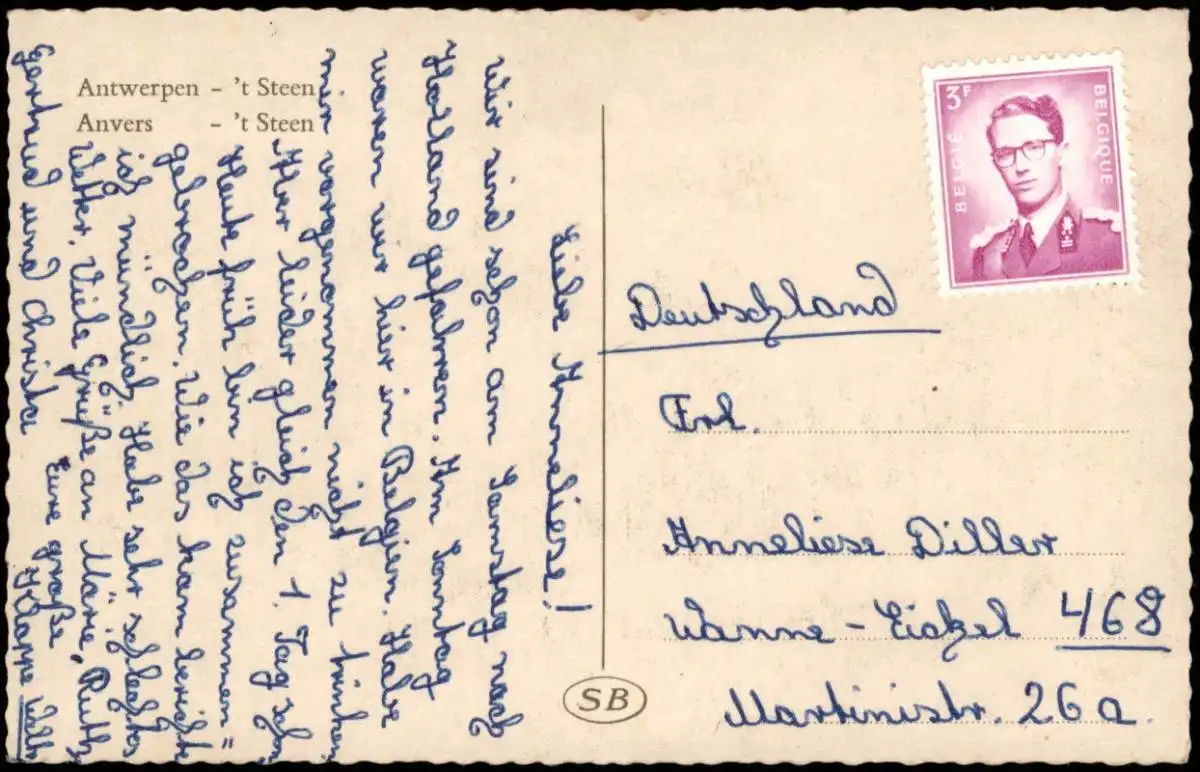 Antwerpen - 't Steen
Anvers - 't Steen
Liebe Anneliese!
Wir sind schon am Samstag nach
Holland gefahren. Am Sonntag
waren wir hier in Belgien. Habe
mir vorgenommen nicht zu trinken
Aber leider gleich den 1. Tag schon
Heute früh bin ich zusammen=
gebrochen. Wie das kam berichte
ich mündlich. Habe sehr schlechtes
Wetter. Viele Grüße an Marie, Ruth,
Gertrud und Christa
Eure große
Klappe
3F
BELGIË
BELGIQUE
Deutschland
Frl.
Anneliese Diller
Wanne-Eickel 468
Martinistr. 26a.
SB